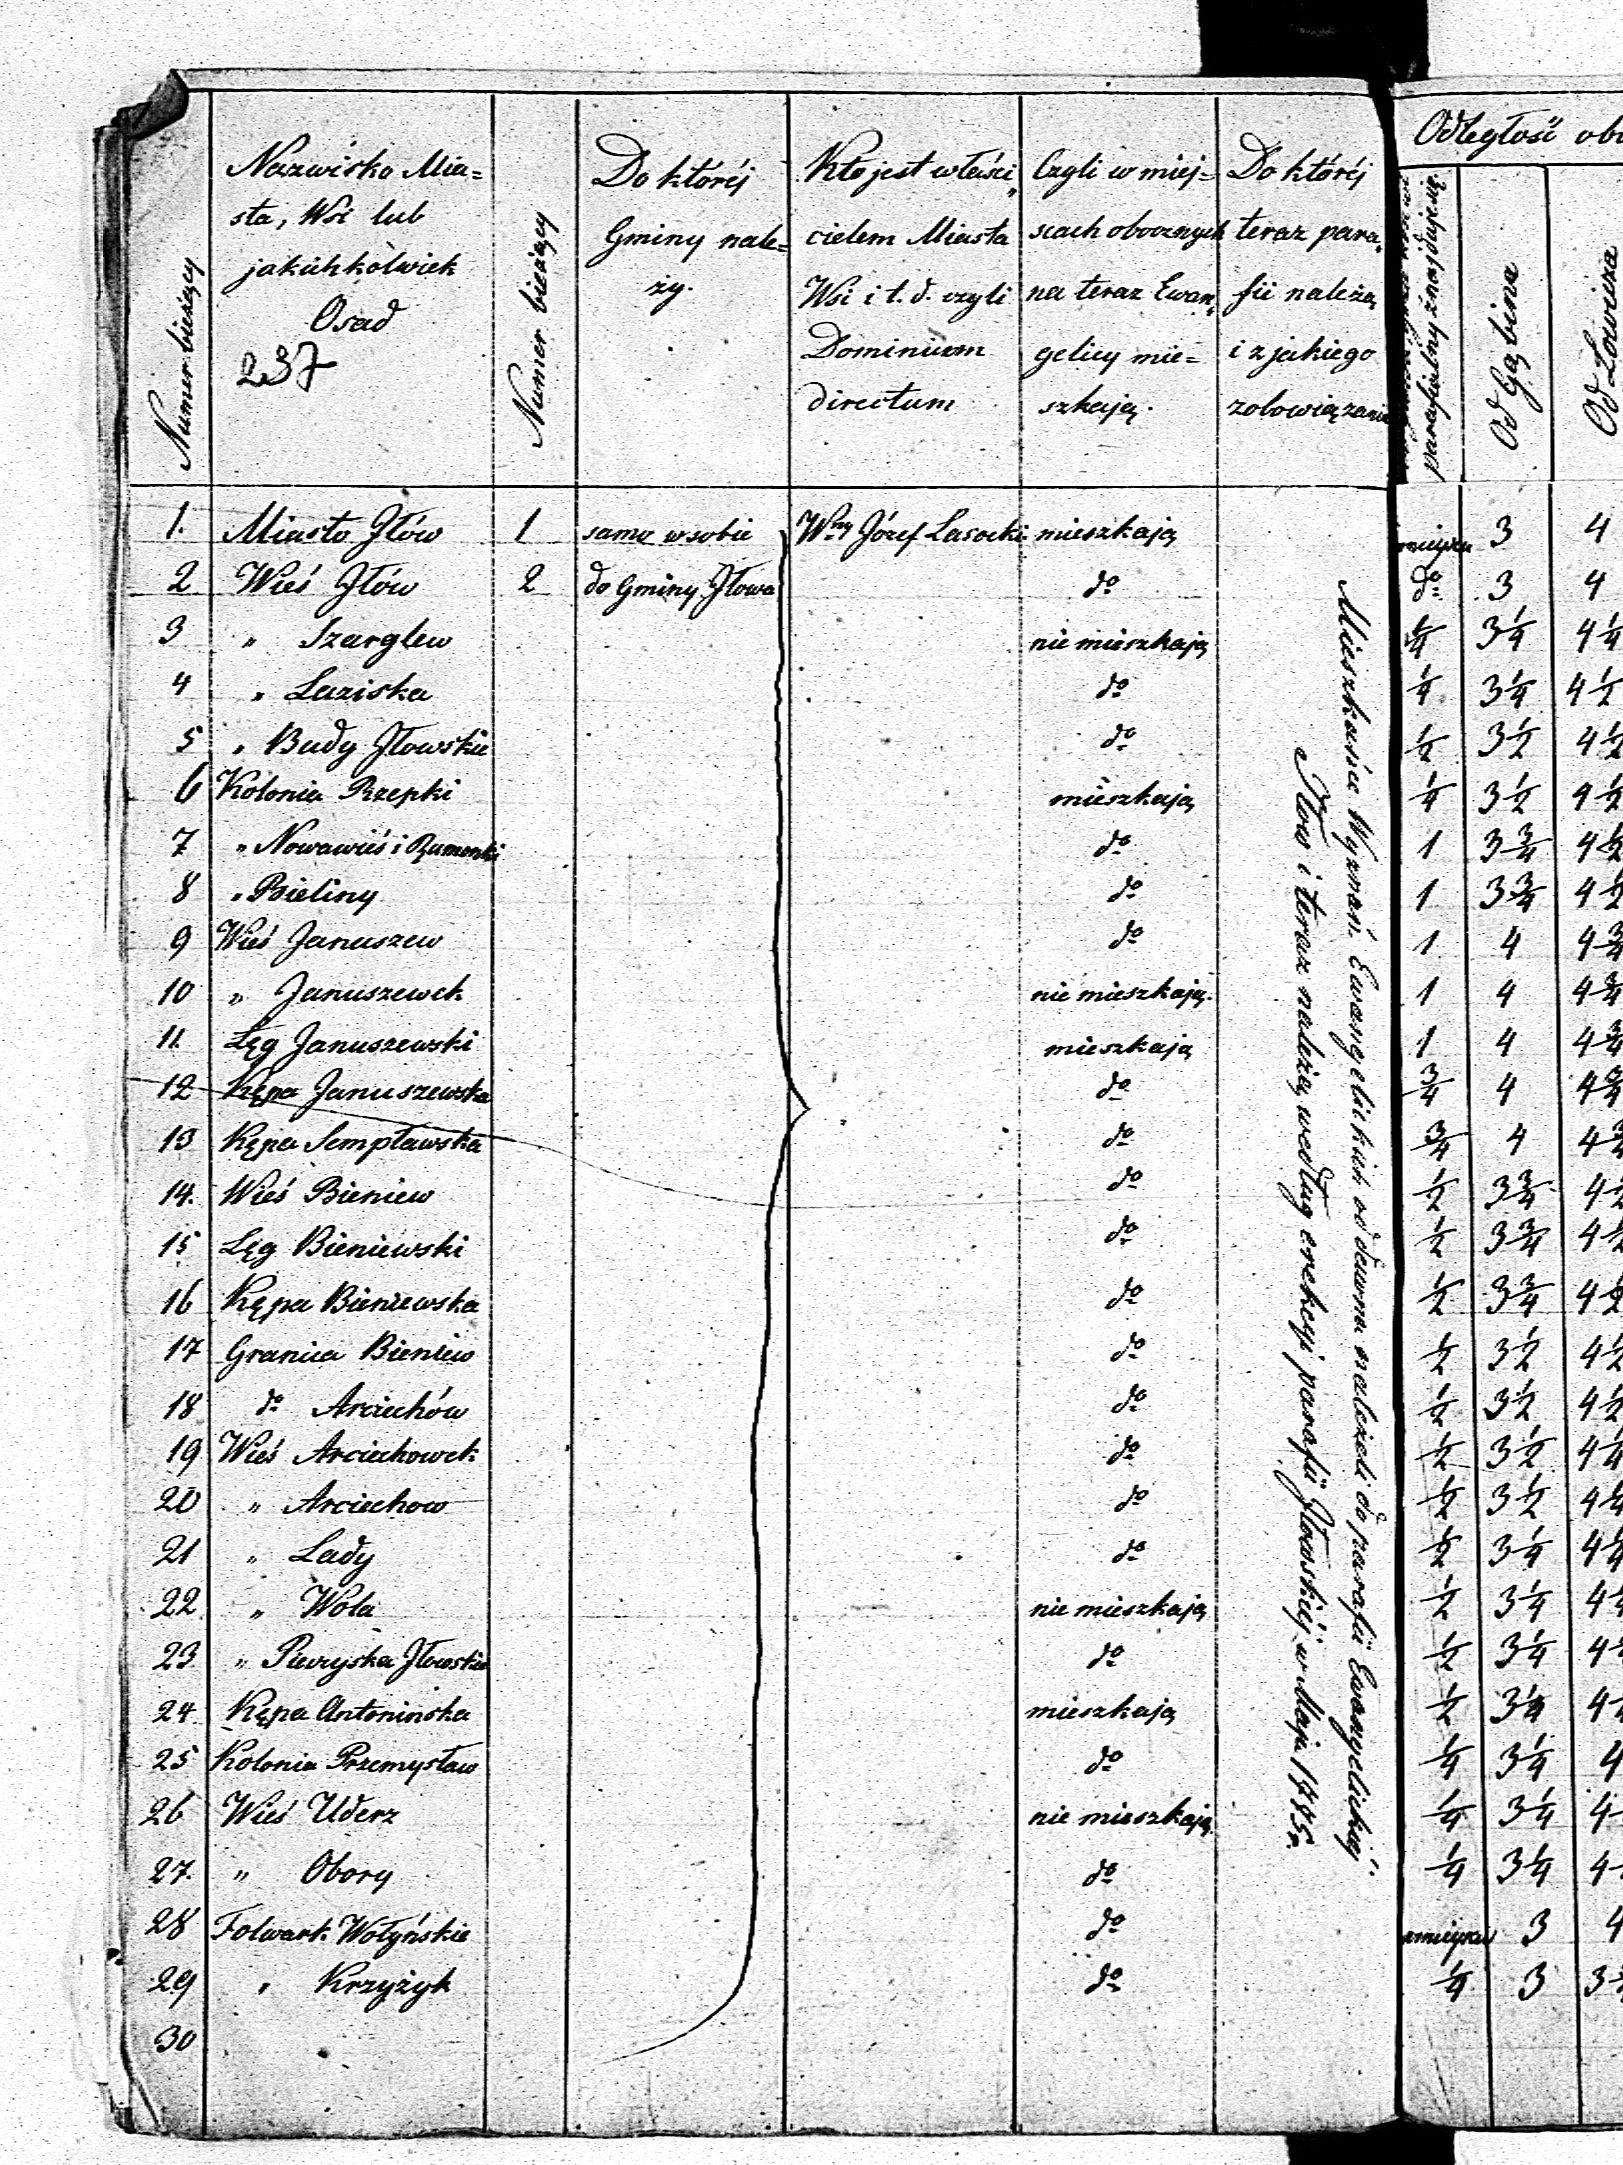 Numer bieżący
Nazwisko Mia=
sta, Wsi lub
jakichkolwiek
Osad
237
Numer bieżący
Do któréj
Gminy nale=
ży.
Kto jest właści„
cielem Miasta
Wsi i t. d. czyli
Dominium
directum
Czyli w miej=
scach obocznych
na teraz Ewan„
gelicy mie=
szkają.
Do któréj
teraz para„
fii należą
i z jakiego
zobowiązania
Odległość obo
parafialny znajduje się
Od Gąbina
Od Łowicza
1. Miasto Jłów 1 samo w sobie Wny Józef Lasocki mieszkają 3 4
2 Wieś Jłów 2 do Gminy Jłowa do do 3 4
3 „ Szarglew nie mieszkają 1/4 3 1/4 4 1/4
4 „ Laziska do 1/4 3 1/4 4 1/2
5 „ Budy Jłowskie do 1/2 3 1/2 4 1/2
6 Kolonia Rzepki mieszkają 1/4 3 1/2 4 1/2
7 „ Nowawieś i Rumonki do 1 3 3/4 4 1/2
8 „ Bieliny do 1 3 3/4 4 1/2
9 Wieś Januszew do 1 4 4 3/4
10 „ Januszewek nie mieszkają. 1 4 4 3/4
11. Łęg Januszewski mieszkają 1 4 4 3/4
12 Kępa Januszewska do 3/4 4 4 3/4
13 Kępa Sempławska do 3/4 4 4 3/4
14. Wieś Bieniew do 1/2 3 3/4 4 1/2
15 Łęg Bieniewski do 1/2 3 3/4 4 1/2
16 Kępa Bieniewska do 1/2 3 3/4 4 1/2
17 Granica Bieniew do 1/2 3 1/2 4 1/2
18 do Arciechów do 1/2 3 1/2 4 1/2
19 Wieś Arciechowek do 1/2 3 1/2 4 1/4
20 „ Arciechow do 1/2 3 1/2 4 1/4
21 „ Lady do 1/2 3 1/4 4 1/4
22 „ Wola nie mieszkają 1/2 3 1/4 4
23 „ Jłowskie do 1/2 3 1/4 4
24 Kępa Antoninska mieszkają 1/2 3 1/4 4
25 Kolonia Przemysław do 1/4 3 1/4 4
26 Wieś Uderz nie mieszkają. 1/4 3 1/4 4
27. „ Obory do 1/4 3 1/4 4
28 Folwark Wołyńskie do 3 4
29 „ Krzyżyk do 1/4 3 3
30
Mieszkańce Wyznań Ewangelickich od dawna należeli do parafii Ewangelickiéj
Jłow i teraz należą według erekcyi parafii Jłowskiéj w Maju 1775 r.